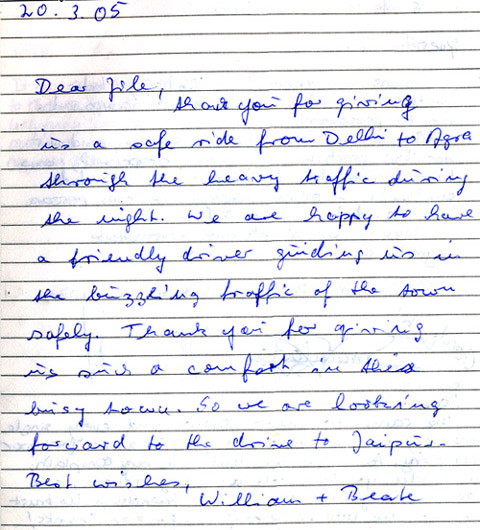 20.3.05
Dear Jile,
thank you for giving
us a safe ride from Delhi to Agra
through the heavy traffic during
the night. We are happy to have
a friendly driver guiding us in
the buzzling traffic of the town
safely. Thank you for giving
us such a comfort in this
busy town. So we are looking
forward to the drive to Jaipur.
Best wishes,
William + Beate